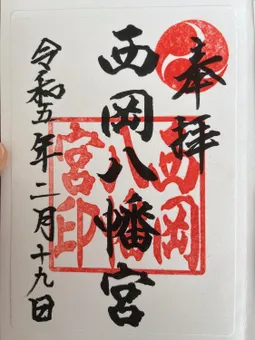 奉拝
西岡八幡宮
西岡八幡宮印
令和五年二月十九日